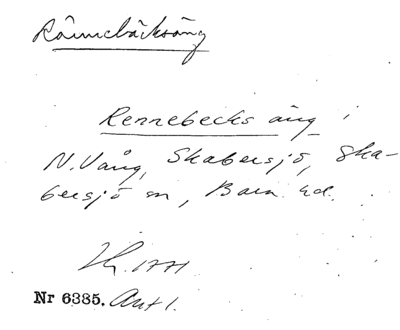 Rännebäcksäng
Rennebecks äng i
N. Vång, Skabersjö, Ska-
bersjö sn, Bara hd.
1771
Nr 6385. Ant 1.